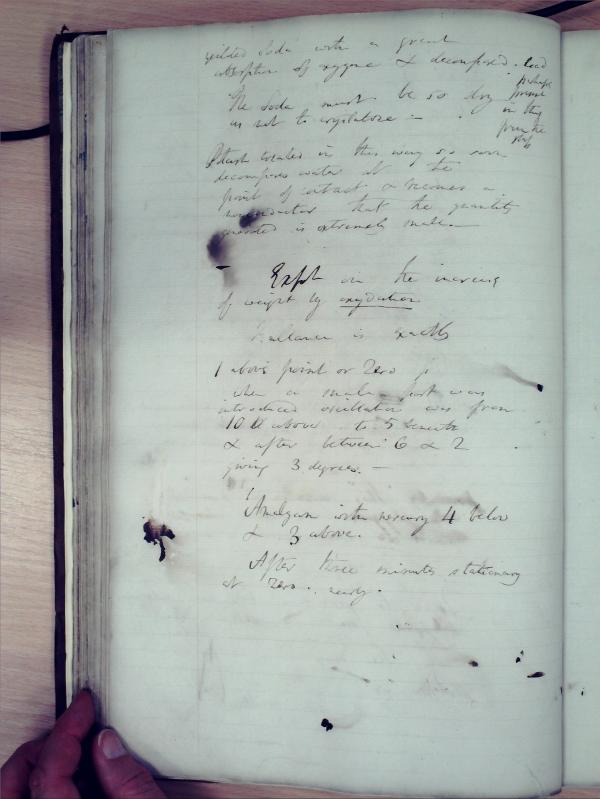 yielded Soda with a great
absorption of oxygene & decomposed lead
The Soda must be so dry
as not to crystalize –
Potash treated in this way so soon
decomposes water at the
point of contact & becomes a
nonconductor that the quantity
is extremely small.
Expt on the increase
of weight by oxydation
Ballance is exactly
1 above point or Zero
when a small part was
introduced oscillation was from
10 above to 5 beneath
& after between 6 & 2
giving 3 degrees. –
Amalgam with mercury 4 below
& 3 above.
After three minutes stationary
at Zero. nearly.